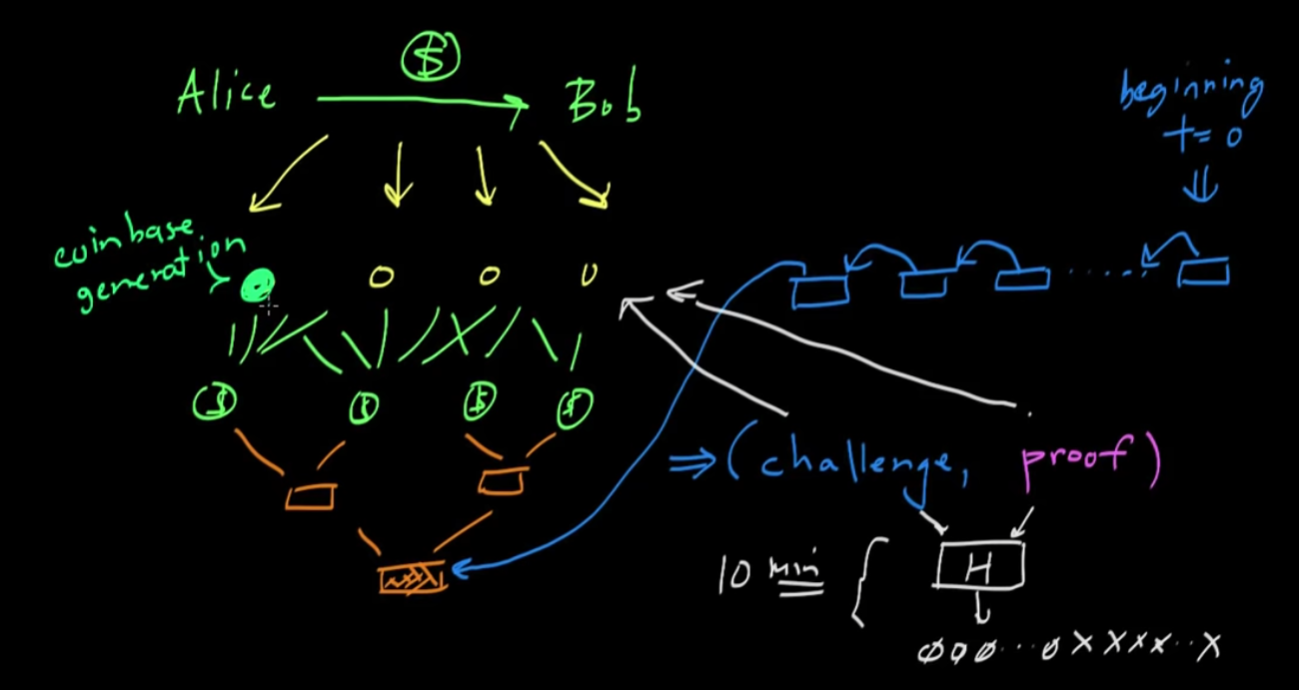 $
Alice → Bob
beginning
t = 0
⇓
coinbase
generation
0 0 0
$ $ $ $
⇒ (challenge, proof)
10 min { H
000...0XXXX..X